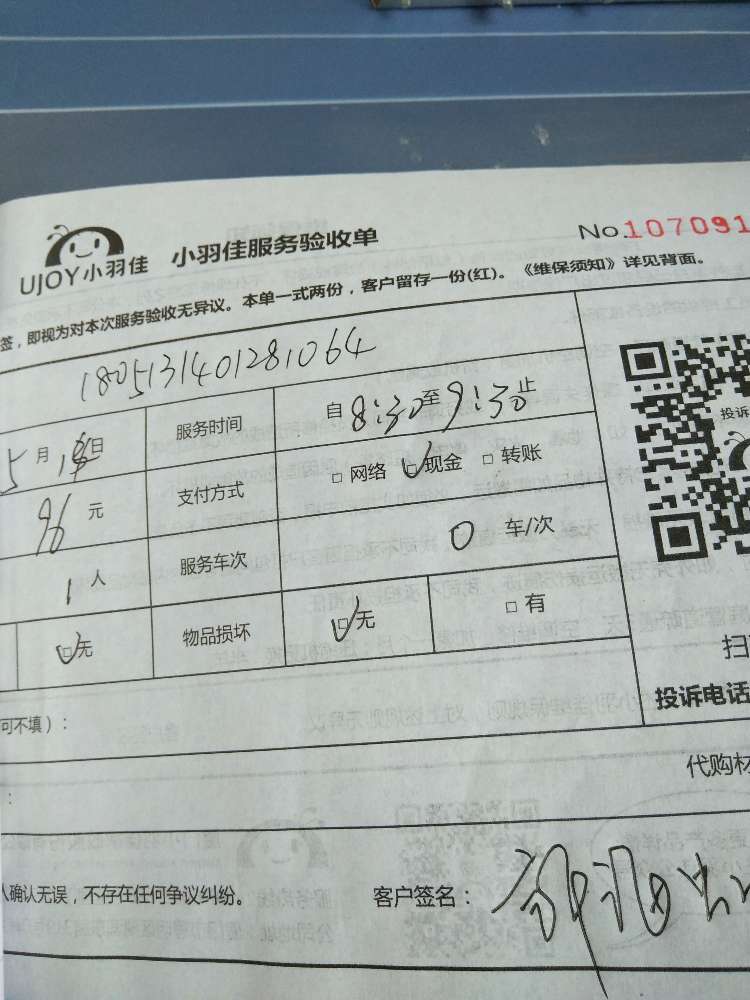 UJOY小羽佳 小羽佳服务验收单 No.107091
签，即视为对本次服务验收无异议。本单一式两份，客户留存一份(红)。《维保须知》详见背面。
1805131401281064
5月 日 服务时间 自8:30至9:30止
96元 支付方式 □网络 ☑现金 □转账
投诉
1人 服务车次 0车/次
☑无 物品损坏 ☑无 □有
扫
投诉电话
可不填）：
代购材
：
人确认无误，不存在任何争议纠纷。 客户签名：